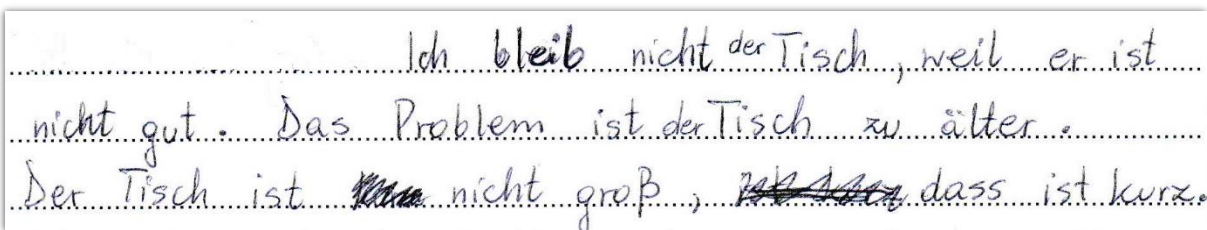 Ich bleib nicht der Tisch, weil er ist
nicht gut. Das Problem ist der Tisch zu älter.
Der Tisch ist nicht groß, dass ist kurz.